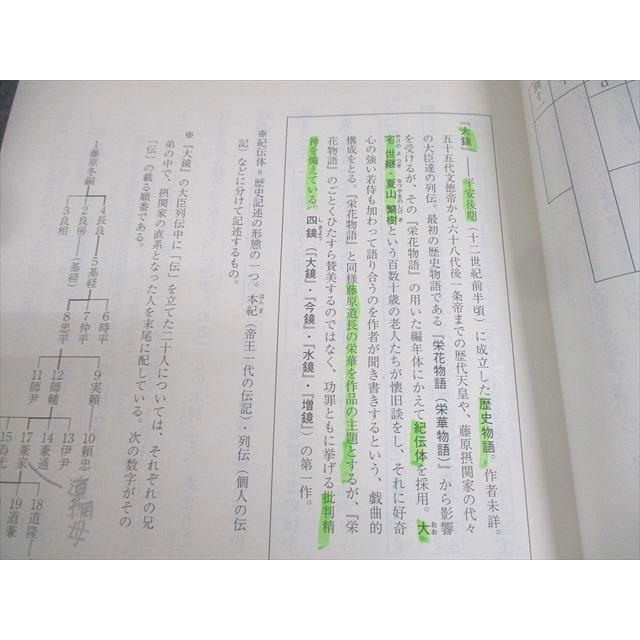 『大鏡』――平安後期(十二世紀前半頃)に成立した歴史物語。作者未詳。
五十五代文徳帝から六十八代後一条帝までの歴代天皇や、藤原摂関家の代々
の大臣達の列伝。最初の歴史物語である『栄花物語(栄華物語)』から影響
を受けるが、その『栄花物語』の用いた編年体にかえて紀伝体を採用。大
宅世継・夏山繁樹という百数十歳の老人たちが懐旧談をし、それに好奇
心の強い若侍も加わって語り合うのを作者が聞き書きするという、戯曲的
構成をとる。『栄花物語』と同様藤原道長の栄華を作品の主題とするが、『栄
花物語』のごとくひたすら賛美するのではなく、功罪ともに挙げる批判精
神を備えている。四鏡(『大鏡』・『今鏡』・『水鏡』・『増鏡』)の第一作。
※紀伝体=歴史記述の形態の一つ。本紀(帝王一代の伝記)・列伝(個人の伝
記)などに分けて記述するもの。
※『大鏡』の大臣列伝中に「伝」を立てた二十人については、それぞれの兄
弟の中で、摂関家の直系となった人を末尾に配している。次の数字がその
「伝」の載る順番である。
1藤原冬嗣
4長良
2良房
3良相
5基経
(基経)
6時平
7仲平
8忠平
9実頼
12師輔
11師尹
10頼忠
13伊尹
14兼通
17兼家
15為光
18道隆
19道兼
道綱母